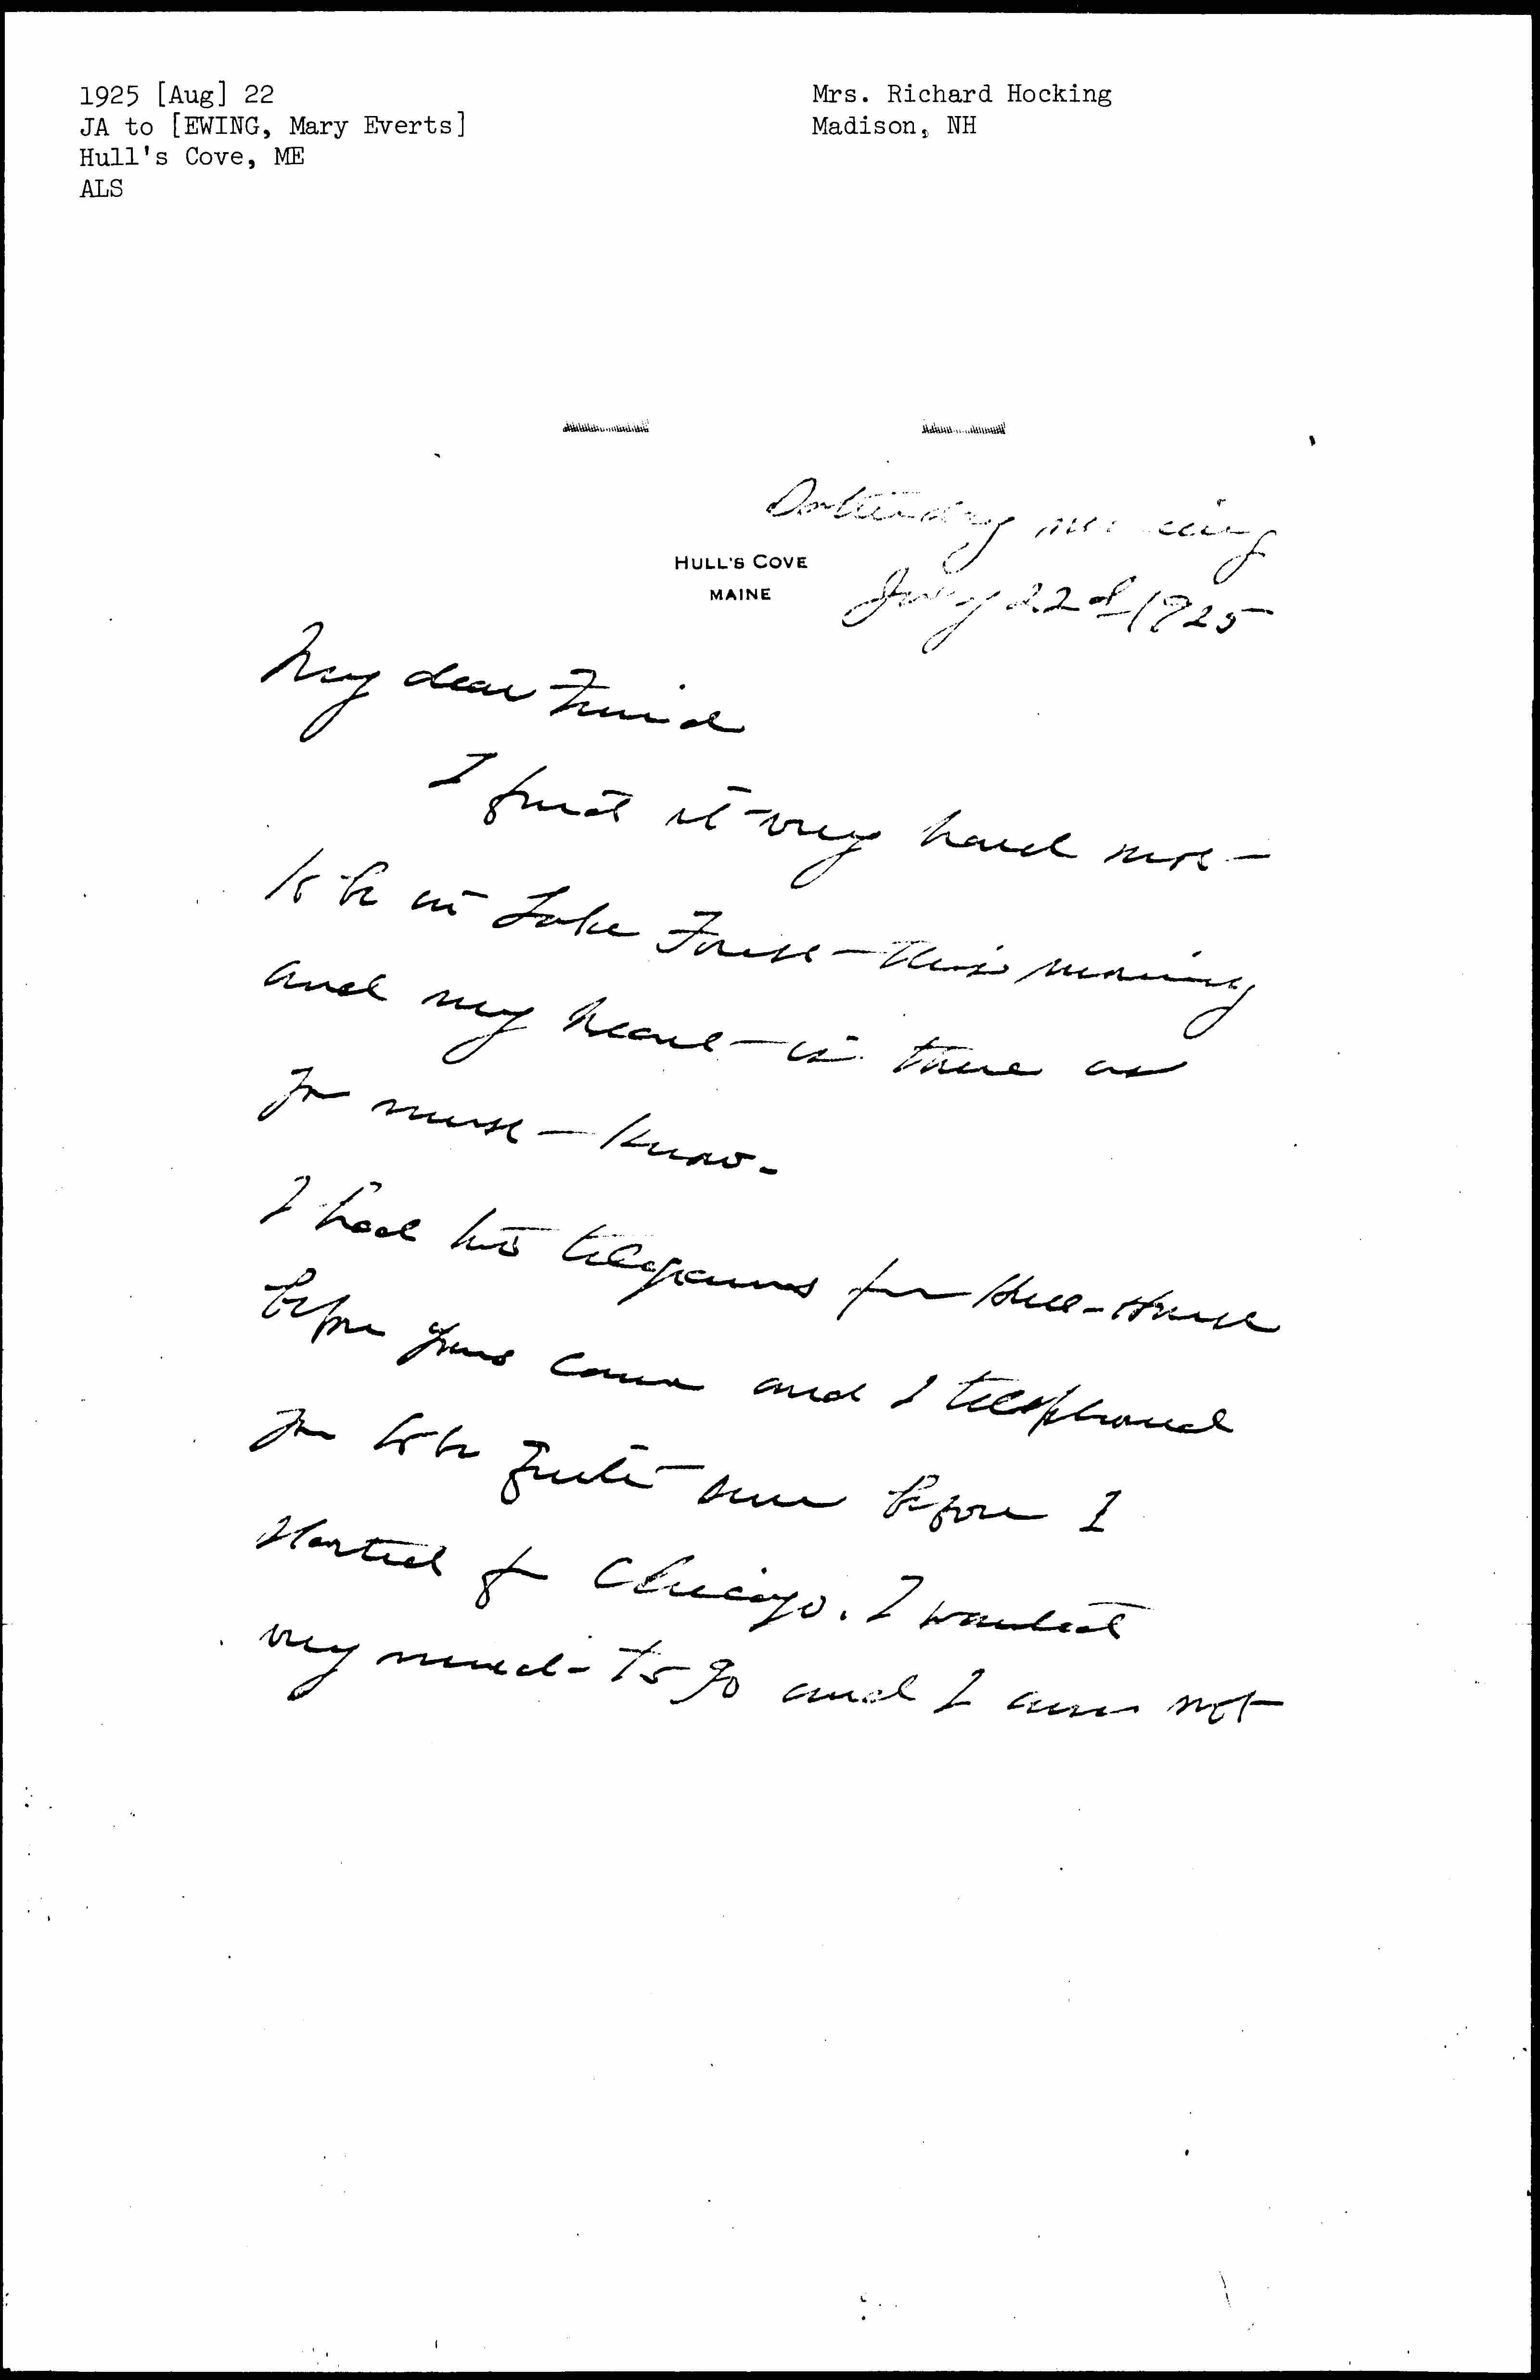 1925 [Aug] 22
JA to [EWING, Mary Everts]
Hull's Cove, ME
ALS
Mrs. Richard Hocking
Madison, NH
Saturday morning
HULL'S COVE
MAINE
July 22d 1925
My dear Friend
I find it very hard not
to be in Lake Forest this morning
and my heart is there as
you must know.
I had two telegrams from Hull-House
before yours came and I telephoned
you to be quite sure before I
started for Chicago. I wanted
very much to go and I am not